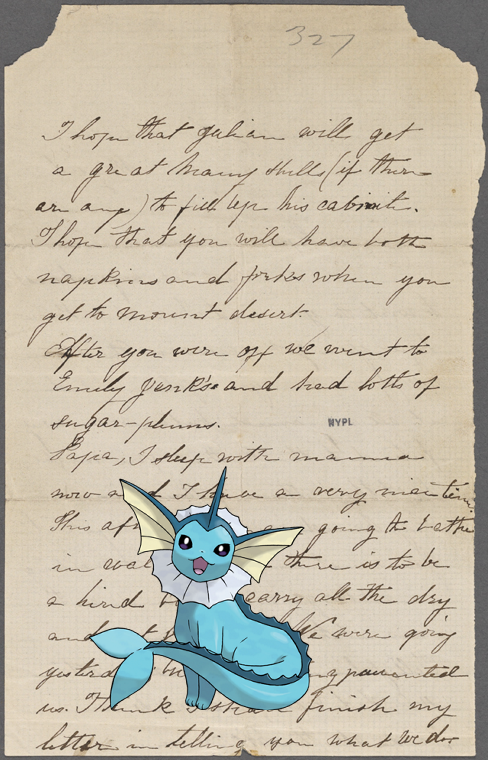 327
I hope that Julian will get
a great many shells (if there
are any) to fill up his cabinit.
I hope that you will have both
napkins and forkes when you
get to mount desert.
After you were off we went to
Emily and had lotts of
sugar-plums.
NYPL
Papa, I sleep with mamma
now I have a very nice time.
This going to bathe
in there is to be
a kind carry all the day
and We were going
prevented
us. I think I finish my
letter in telling you what we do.